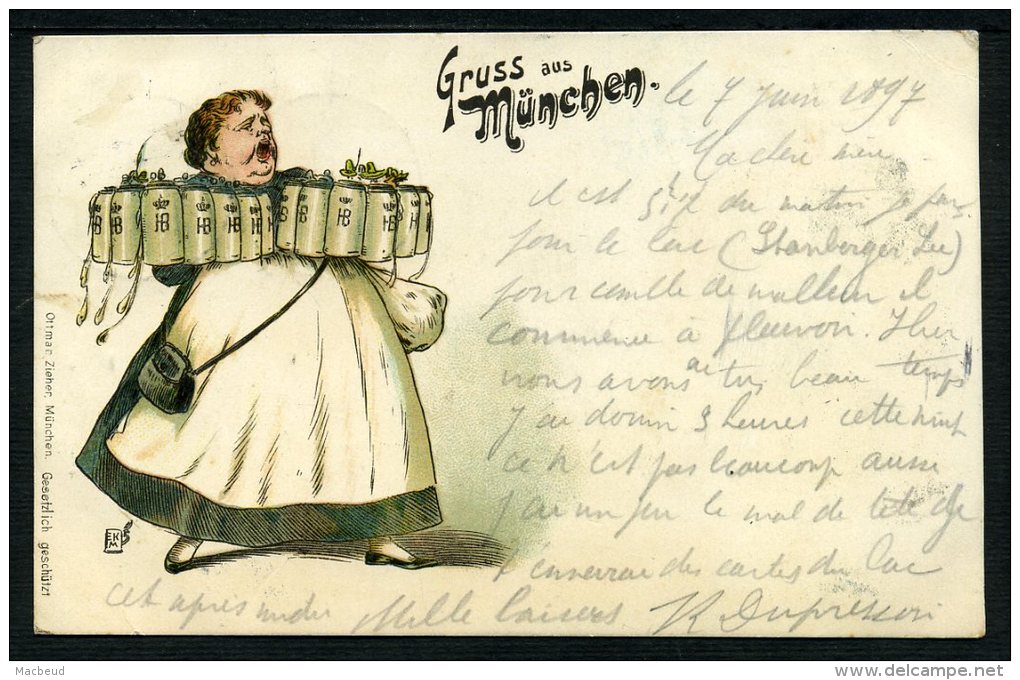 Gruss aus
München.
le 7 juin 1897
Ma chère mère
il est 5h ½ du matin je pars
pour le lac (Starnberger See)
pour comble de malheur il
commence à pleuvoir. Hier
nous avons eu très beau temps
J'ai dormi 3 heures cette nuit
ce n'est pas beaucoup aussi
j'ai un peu le mal de tête
J'enverrai des cartes du lac
cet après midi Mille baisers
HB HB HB HB HB HB HB HB HB HB HB
EK
M
Ottmar Zieher, München. Gesetzlich geschützt
Macbeud
delcampe.net